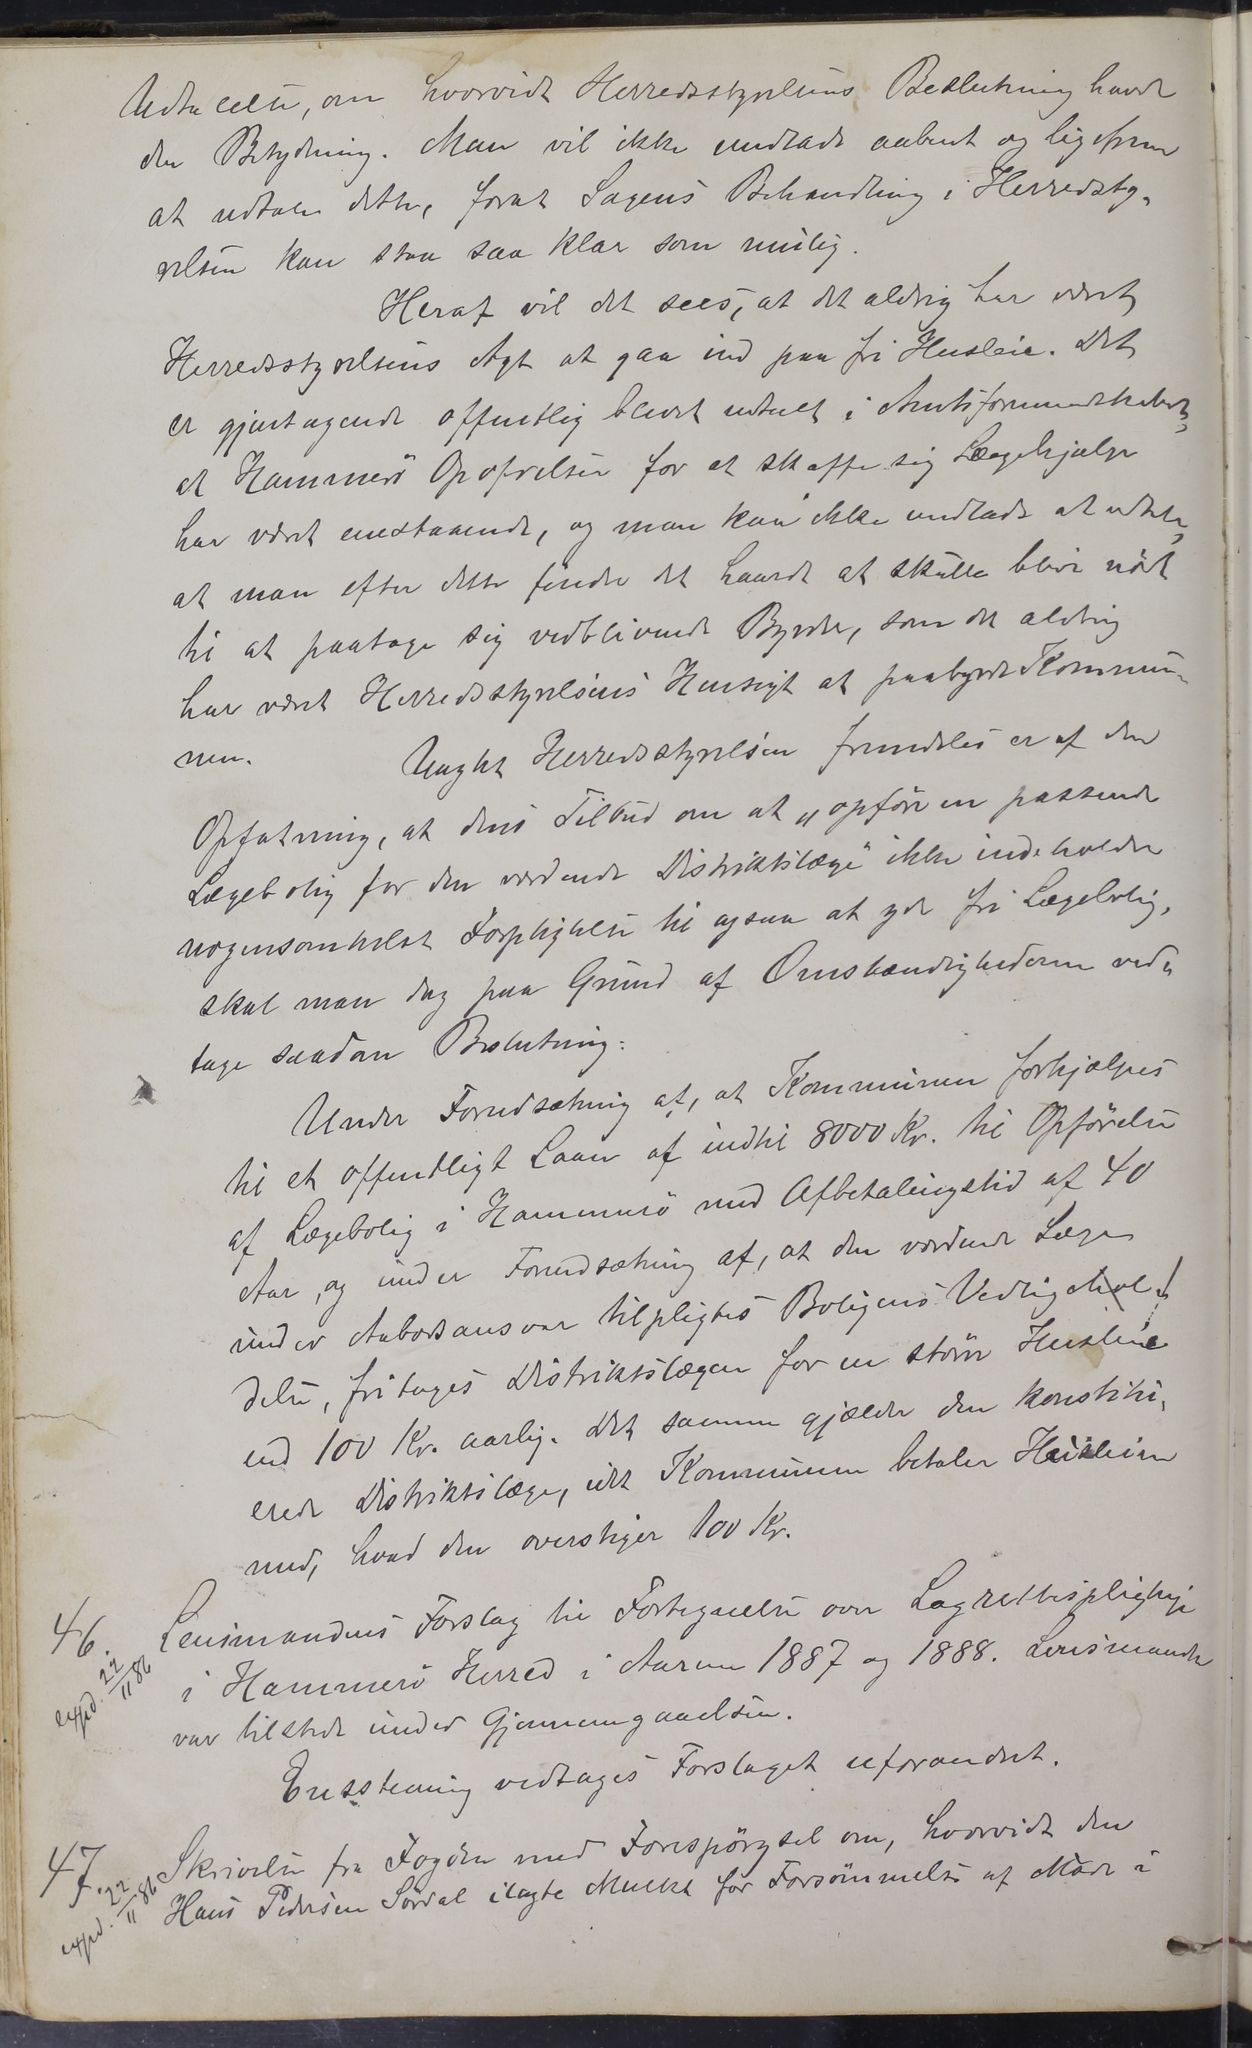 Udtalelse, om hvorvidt Herredsstyrelsens Beslutning havde
den Betydning. Man vil ikke undlade aabent og ligefrem
at udtale dette, forat Sagens Behandling i Herredsty-
relsen kan staa saa klar som mulig.
Heraf vil det sees, at det aldrig har været
Herredsstyrelsens Agt at gaa ind paa fri Husleie. Det
er gjentagende offentlig blevet udtalt i Amtsformandskabet,
at Hammerö Opofrelser for at skaffe sig Lægehjælp
har været enestaaende, og man kan ikke undlade at udtale,
at man efter dette finder det haardt at skulle blive nödt
til at paatage sig vedblivende Byrder, som det aldrig
har været Herredsstyrelsens Hensigt at paabyrde Kommu-
nen. Uagtet Herredsstyrelsen fremdeles er af den
Opfatning, at dens Tilbud om at "opföre en passende
Lægebolig for den vordende Distriktslæge" ikke indeholder
nogensomhelst Forpligtelse til ogsaa at yde fri Lægebolig,
skal man dog paa Grund af Omstændighederne ved-
tage saadan Beslutning:
Under Forudsætning af, at Kommunen forhjælpes
til et offentligt Laan af indtil 8000 Kr. til Opförelse
af Lægebolig i Hammerö med Afbetalingstid af 40
Aar, og under Forudsætning af, at den vordende Læge
under Aabodsansvar tilpligtes Boligens Vedligehol-
delse, fritages Distriktslægen for en större Husleie
end 100 Kr. aarlig. Det samme gjælder den konstitu-
erede Distriktslæge, idet Kommunen betaler Husleien
med, hvad den overstiger 100 Kr.
46. Lensmandens Forslag til Fortegnelse over Lagrettespligtige
expd. 22/11 86 i Hammerö Herred i Aarene 1887 og 1888. Lensmanden
var tilstede under Gjennemgaaelsen.
Enstemmig vedtages Forslaget uforandret.
47. Skrivelse fra Fogden med Forespörgsel om, hvorvidt den
expd. 22/11 86 Hans Pedersen Sördal ilagte Mulkt for Forsömmelse af Möde i